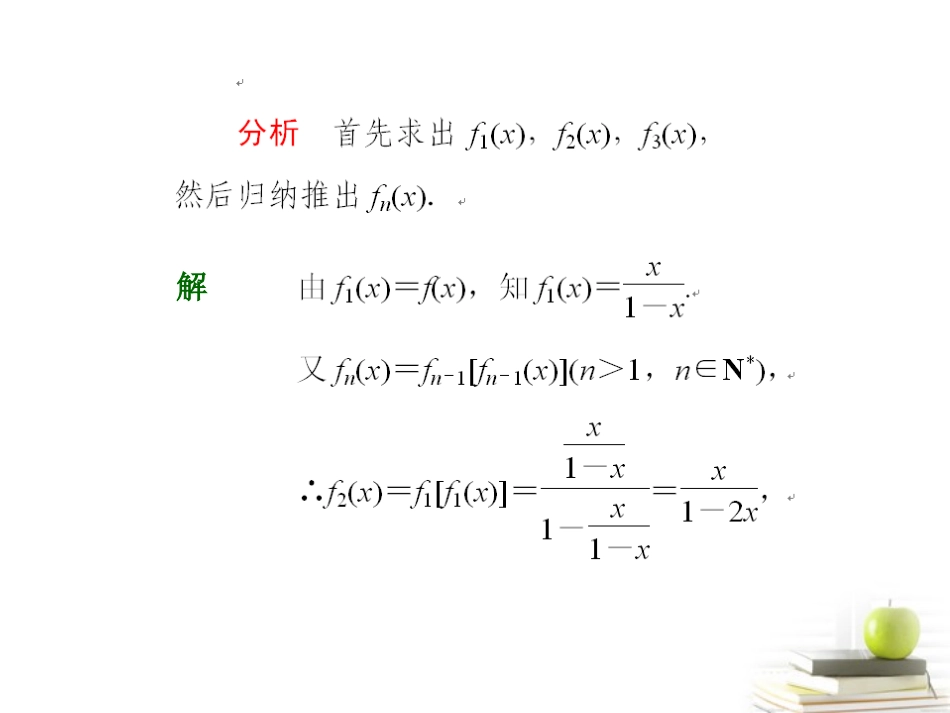 分析 首先求出 f₁(x)，f₂(x)，f₃(x)，
然后归纳推出 fₙ(x)．
解 由 f₁(x)＝f(x)，知 f₁(x)＝\frac{x}{1－x}.
又 fₙ(x)＝fₙ₋₁[fₙ₋₁(x)](n＞1，n∈N*)，
∴f₂(x)＝f₁[f₁(x)]＝\frac{\frac{x}{1－x}}{1－\frac{x}{1－x}}＝\frac{x}{1－2x}，